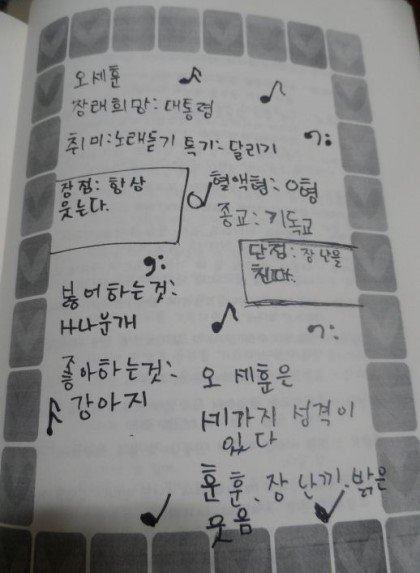 오세훈
장래희망: 대통령
취미: 노래듣기 특기: 달리기
장점: 항상
웃는다.
혈액형: O형
종교: 기독교
단점: 장난을
친다.
싫어하는것:
H나분개
좋아하는것:
강아지
오 세훈은
세가지 성격이
있다
훈훈, 장난끼, 밝은
웃음